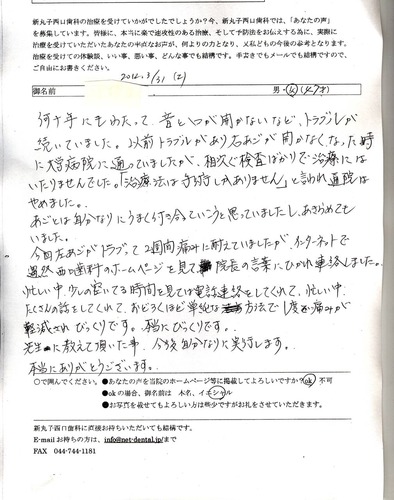 新丸子西口歯科の治療を受けていかがでしたでしょうか?今、新丸子西口歯科では、「あなたの声」
を募集しています。皆様に、本当に楽で迅速性のある治療、そして予防法をお伝えする為に、実際に
治療を受けていただいたあなたの率直なお声が、何よりの力となり、又私どもの今後の参考となります。
治療を受けての体験談、いい事、悪い事、どんな事でも結構です。手書きでもメールでも結構ですので、
ご自由にお書きください。
2012.3/31 (土)
御名前 男・女(47才)
何十年にもわたって、昔から口が開かないなど、トラブルが
続いていました。以前トラブルがあり右あごが開かなくなった時
に大学病院に通っていましたが、相次ぐ検査ばかりで治療には
いたりませんでした。「治療法は手術しかありません」と言われ通院は
やめました。
あごとは自分なりにうまく付き合っていこうと思っていましたし、あきらめても
いました。
今回左あごがトラブって2週間痛みに耐えていましたが、インターネットで
偶然西口歯科のホームページを見て院長の言葉にひかれ連絡しました。
忙しい中、少しの空いてる時間を見ては電話連絡をしてくれて、忙しい中、
たくさんの話をしてくれて、おどろくほど単純な方法で1度で痛みが
軽減されびっくりです。本当にびっくりです。
先生に教えて頂いた事、今後自分なりに実行します。
本当にありがとうございます。
○で囲んでください。 ●あなたの声を当院のホームページ等に掲載してよろしいですか?ok 不可
●okの場合、御名前は 本名、イニシャル
●お写真を載せてもよろしい方は些少ですがお礼をさせていただきます。
新丸子西口歯科に直接お持ちいただいても結構です。
E-mailお持ちの方は、info@net-dental.jpまで
FAX 044-744-1181